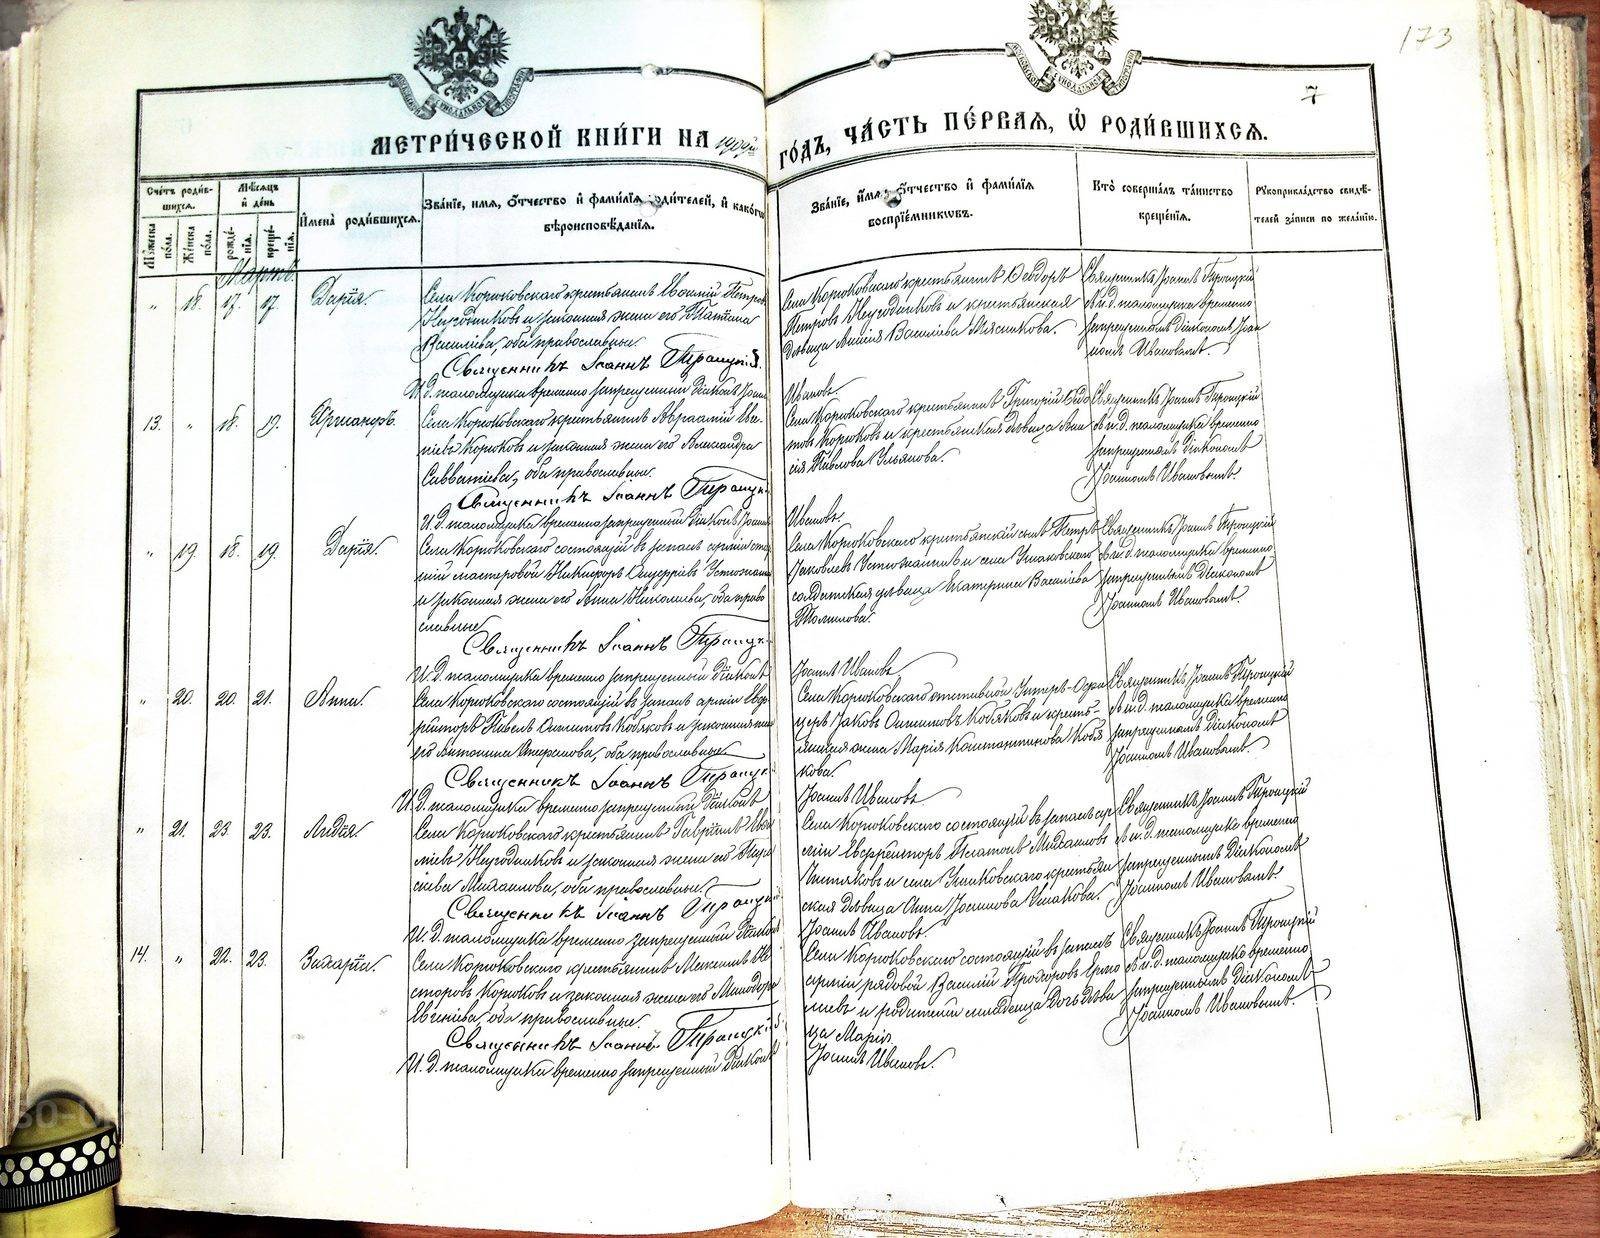 173
7
МОСКОВСКОЙ СѴНОДАЛЬНОЙ ТИПОГРАФІИ
МЕТРИ́ЧЕСКОЙ КНИ́ГИ НА 1909й
ГО́ДЪ, ЧА́СТЬ ПЕ́РВАЯ, Ѡ҆ РОДИ́ВШИХСЯ.
Сче́тъ роди́в-
шихся.
Мѣ́сяцъ
и҆ де́нь
Мꙋ́жеска по́ла.
Же́нска по́ла.
рожде́-
нія.
креще́-
нія.
И҆мена̀ роди́вшихся.
Зва́ніе, и҆мя, ѻ҆́тчество и҆ фами́лія роди́телей, и҆ како́гѡ
вѣроисповѣ́данія.
Зва́ніе, и҆́мя, ѻ҆́тчество и҆ фами́лія
воспріе́мникѡвъ.
Кто̀ соверша́лъ та́инство
креще́нія.
Рꙋкоприкла́дство свидѣ́-
телей за́писи по жела́нію.
Мартъ
" 18. 17. 17. Дарія.
Села Корюковскаго крестьянинъ Евгеній Петровъ
Негодяиковъ и законная жена его Татіана
Василіева, оба православные.
Священникъ Іоаннъ Троицкій.
И. Д. псаломщика временно запрещенный діаконъ Іоаннъ
Ивановъ.
Села Корюковскаго крестьянинъ Ѳеодоръ
Петровъ и крестьянская
дѣвица Василіева Мясникова.
Священникъ Іоаннъ Троицкій
и и.д. псаломщика временно
запрещенный діаконъ Іоан
номъ Ивановымъ.
13. " 18. 19. Александръ.
Села Корюковскаго крестьянинъ Авраамій Евге-
ніевъ Корюковъ и законная жена его Александра
Савватіева, оба православные.
Священникъ Іоаннъ Троицкій
И. Д. псаломщика временно запрещенный діаконъ Іоаннъ
Ивановъ.
Села Корюковскаго крестьянинъ Григорій Ѳедо
товъ Корюковъ и крестьянская дѣвица
Павлова Ульянова.
Священникъ Іоаннъ Троицкій
и и.д. псаломщика временно
запрещеннымъ діакономъ
Іоанномъ Ивановымъ.
" 19. 18. 19. Дарія.
Села Корюковскаго состоящій въ запасѣ арміи стар
шій мастеровой Никифоръ Устюжанинъ
и законная жена его Анна Николаева, оба право
славные.
Священникъ Іоаннъ Троицкій
И. Д. псаломщика временно запрещенный діаконъ
Іоаннъ Ивановъ
Села Корюковскаго крестьянскій сынъ Петръ
Іаковлевъ Устюжанинъ и села Ушаковскаго
солдатская дѣвица Екатерина Василіева
Томилова.
Священникъ Іоаннъ Троицкій
и и.д. псаломщика временно
запрещеннымъ діакономъ
Іоанномъ Ивановымъ.
" 20. 20. 21. Анна.
Села Корюковскаго состоящій въ запасѣ арміи ефр
рейторъ Павелъ Антиповъ Кобяковъ и законная жена
его Антонина, оба православные.
Священникъ Іоаннъ Троицкій
И. Д. псаломщика временно запрещенный діаконъ
Іоаннъ Ивановъ
Села Корюковскаго отставной унтеръ-офи
церъ Іаковъ Антиповъ Кобяковъ и кресть-
янская жена Марія Константинова Кобя
кова.
Священникъ Іоаннъ Троицкій
и и.д. псаломщика временно
запрещеннымъ діакономъ
Іоанномъ Ивановымъ.
" 21. 23. 23. Лидія.
Села Корюковскаго крестьянинъ Гавріилъ
и законная жена его
Михаилова, оба православные.
Священникъ Іоаннъ Троицкій
И. Д. псаломщика временно запрещенный діаконъ
Іоаннъ Ивановъ.
Села Корюковскаго состоящій въ запасѣ ар
міи ефрейторъ Платонъ Михаиловъ
и села Ушаковскаго крестьян
ская дѣвица Анна Ушакова.
Священникъ Іоаннъ Троицкій
и и.д. псаломщика временно
запрещеннымъ діакономъ
Іоанномъ Ивановымъ.
14. " 22. 23. Захарія.
Села Корюковскаго крестьянинъ Максимъ Не
сторовъ Корюковъ и законная жена его Минодора
Евгеніева, оба православные.
Священникъ Іоаннъ Троицкій.
И. Д. псаломщика временно запрещенный діаконъ
Іоаннъ Ивановъ.
Села Корюковскаго состоящій въ запасѣ
арміи рядовой Василій Прохоровъ Ермо
лаевъ и родителей младенца дочь дѣви
ца Марія.
Священникъ Іоаннъ Троицкій
и и.д. псаломщика временно
запрещеннымъ діакономъ
Іоанномъ Ивановымъ.